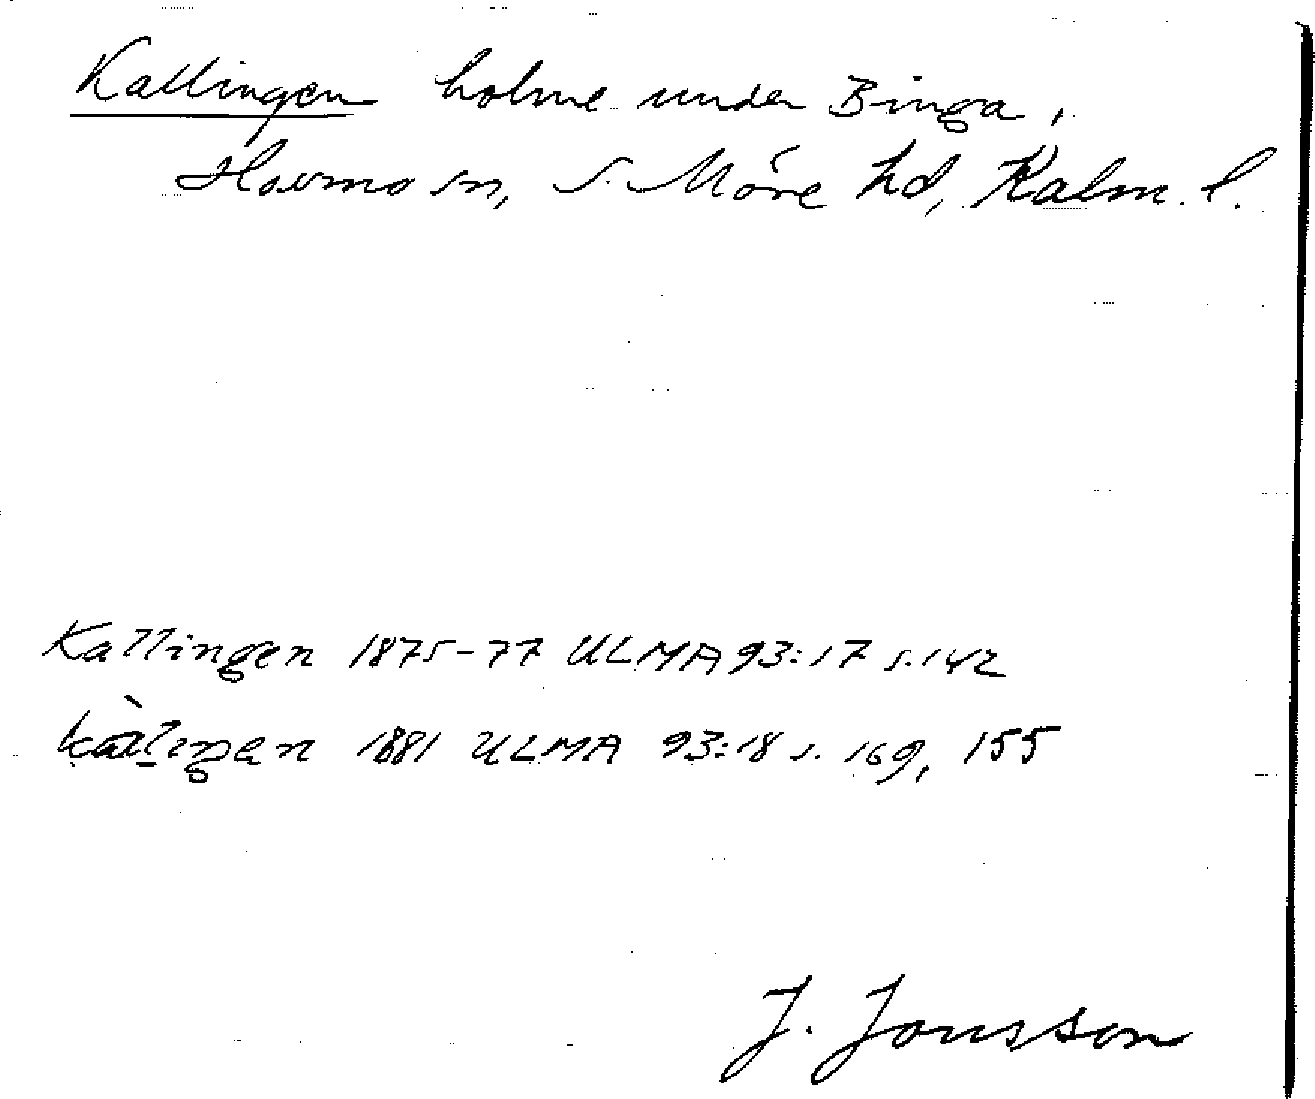 Kallingen holme under Binga,
Hossmo sn, S. Möre hd, Kalm. l.
Kallingen 1875-77 ULMA 93:17 s. 142
1881 ULMA 93:18 s. 169, 155
J. Jonsson